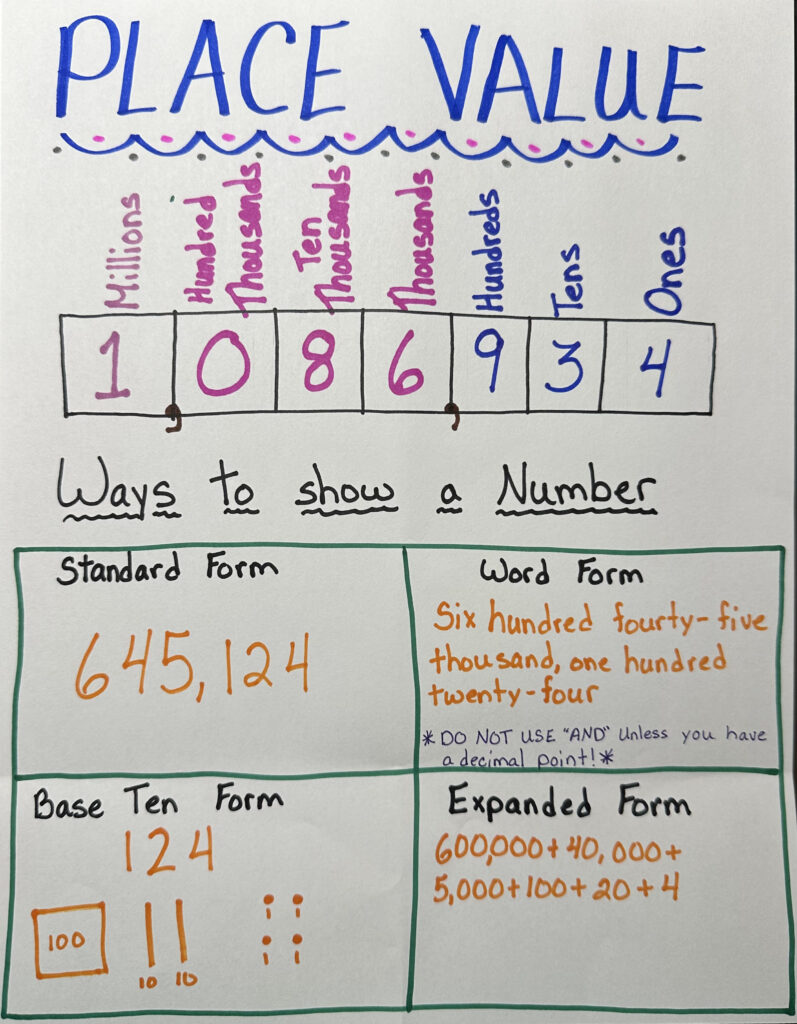 PLACE VALUE
Millions
Hundred Thousands
Ten Thousands
Thousands
Hundreds
Tens
Ones
1,086,934
Ways to show a Number
Standard Form
645,124
Word Form
Six hundred fourty-five
thousand, one hundred
twenty-four
*DO NOT USE "AND" Unless you have
a decimal point!*
Base Ten Form
124
100
10 10
1 1
1 1
Expanded Form
600,000+40,000+
5,000+100+20+4